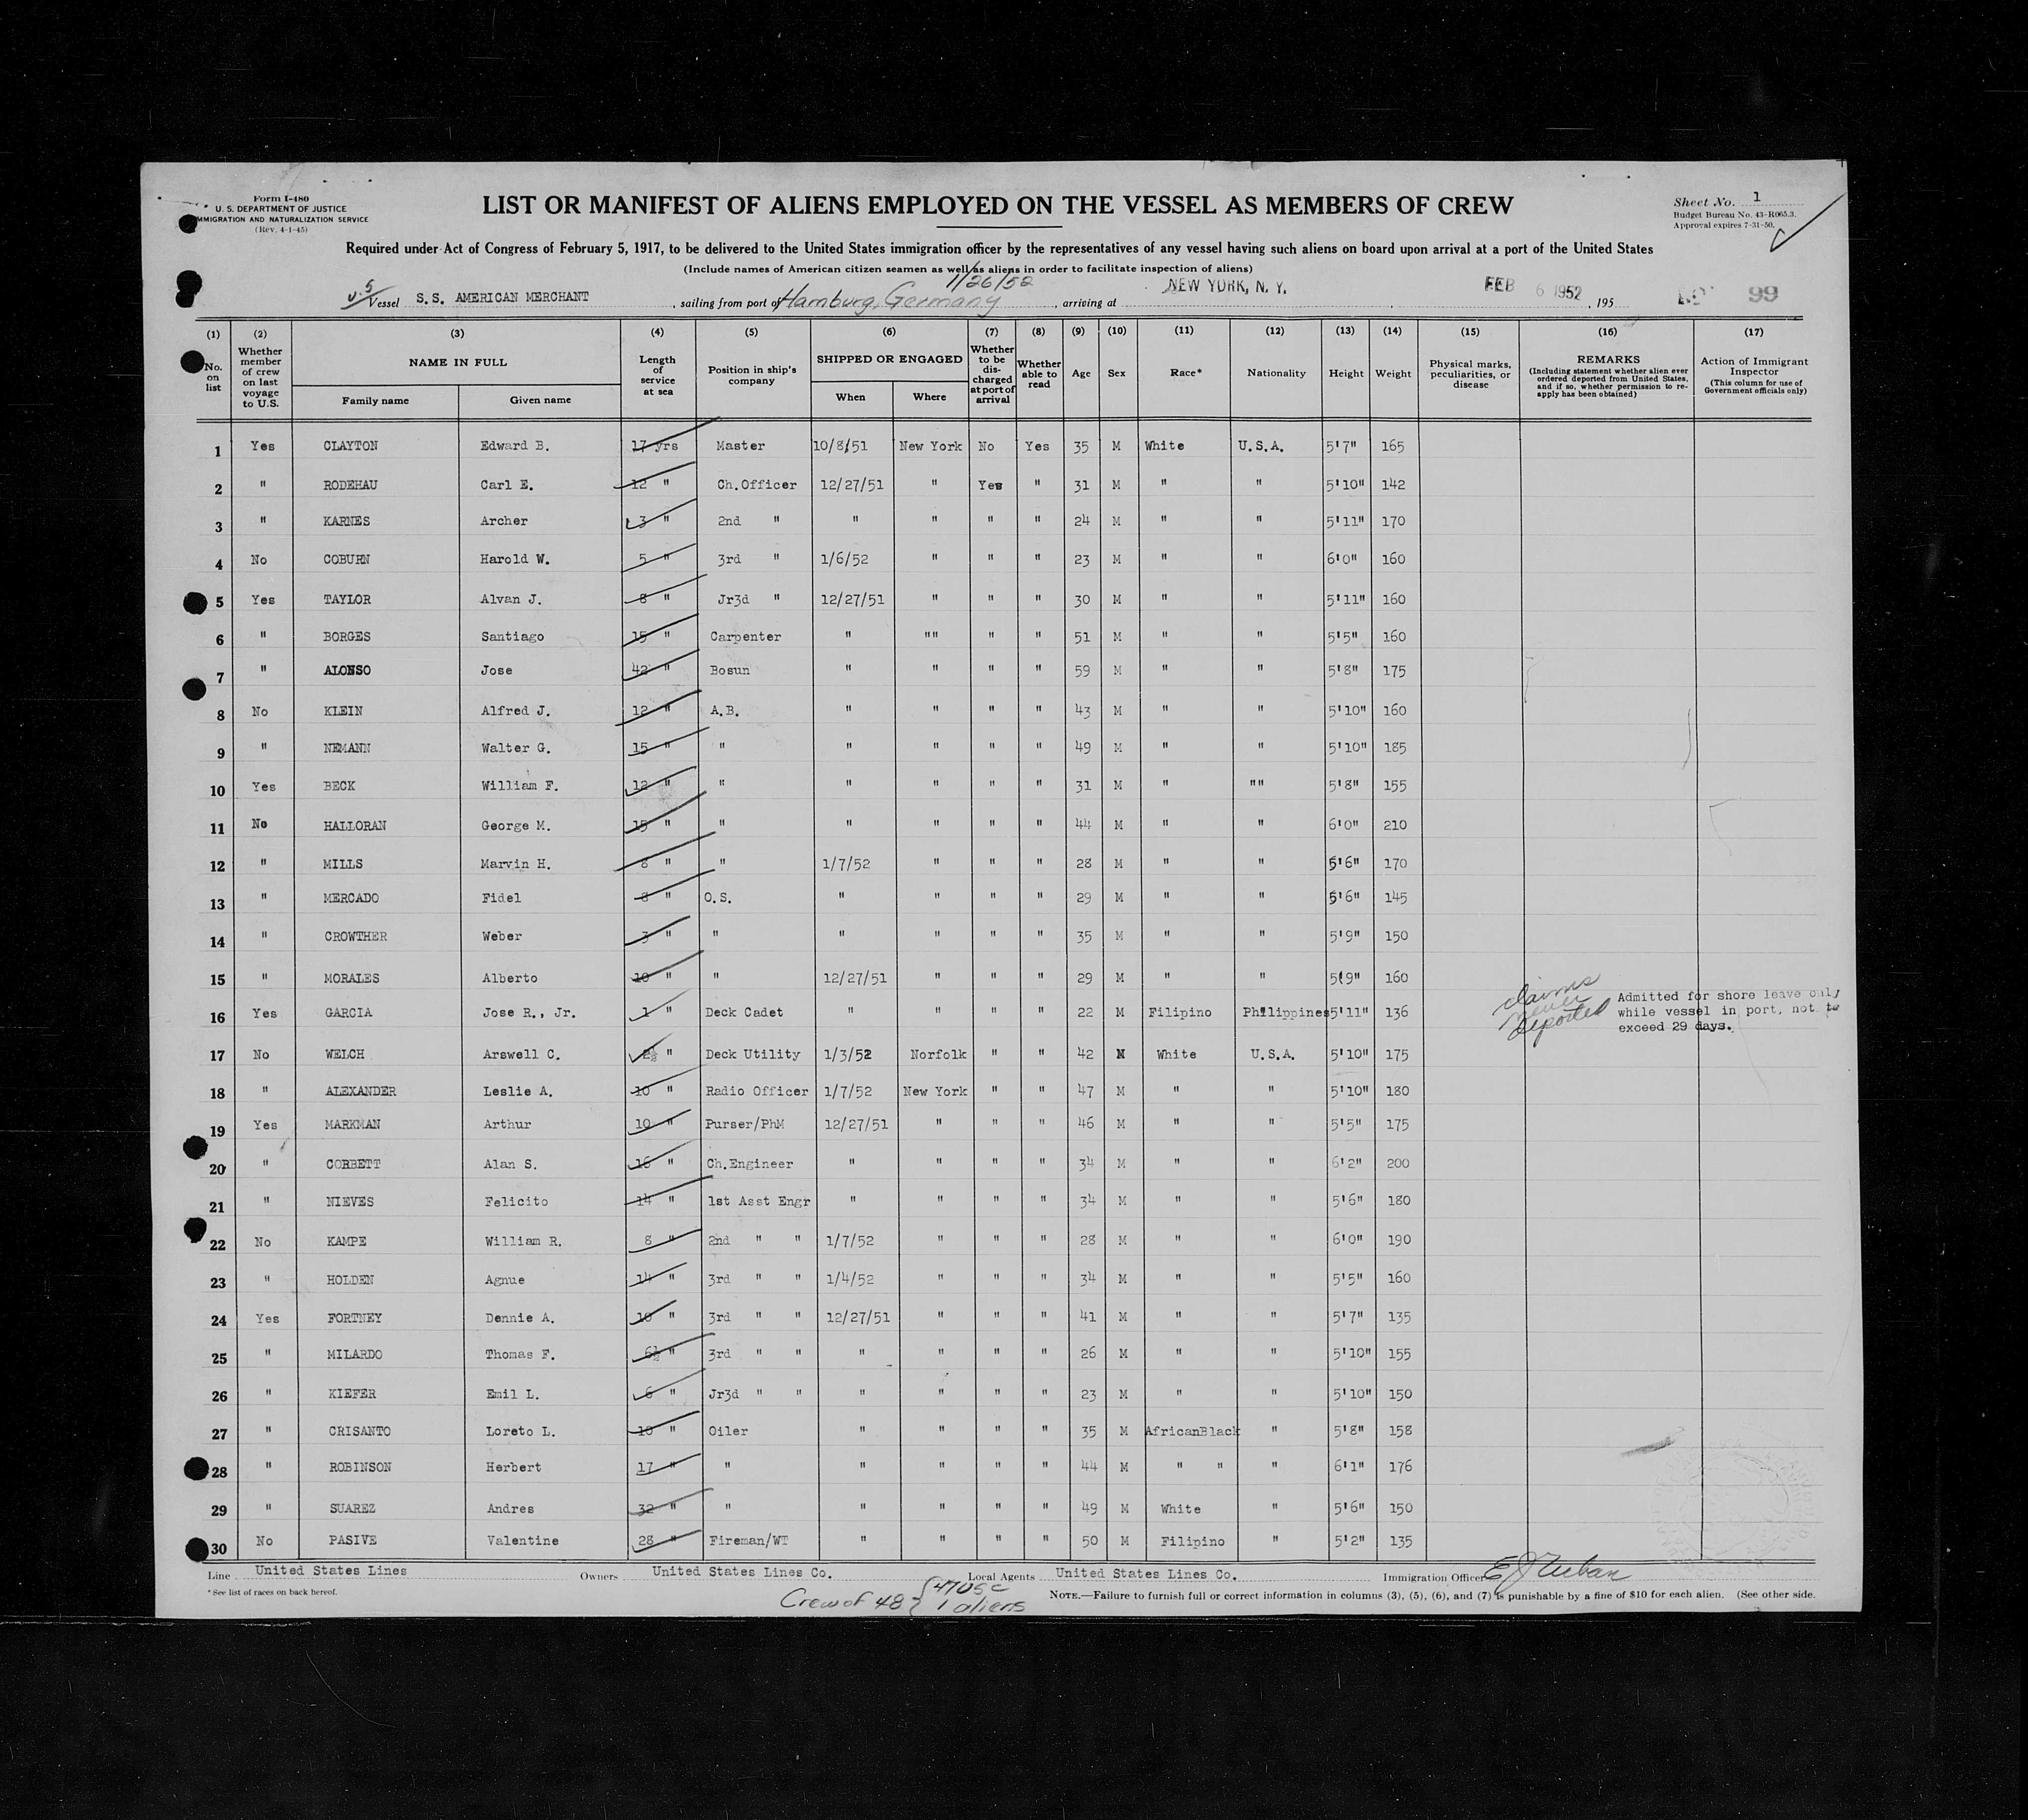 Form I-480
U. S. DEPARTMENT OF JUSTICE
IMMIGRATION AND NATURALIZATION SERVICE
(Rev. 4-1-45)
LIST OR MANIFEST OF ALIENS EMPLOYED ON THE VESSEL AS MEMBERS OF CREW
Sheet No. 1
Budget Bureau No. 43-R065.3.
Approval expires 7-31-50.
Required under Act of Congress of February 5, 1917, to be delivered to the United States immigration officer by the representatives of any vessel having such aliens on board upon arrival at a port of the United States
(Include names of American citizen seamen as well as aliens in order to facilitate inspection of aliens)
1/26/52
U.S Vessel S.S. AMERICAN MERCHANT, sailing from port of Hamburg, Germany, arriving at NEW YORK, N. Y., FEB 6 1952, 195 99
(1) (2) (3) (4) (5) (6) (7) (8) (9) (10) (11) (12) (13) (14) (15) (16) (17)
No. on list
Whether member of crew on last voyage to U.S.
NAME IN FULL
Family name
Given name
Length of service at sea
Position in ship's company
SHIPPED OR ENGAGED
When
Where
Whether to be discharged at port of arrival
Whether able to read
Age
Sex
Race*
Nationality
Height
Weight
Physical marks, peculiarities, or disease
REMARKS
(Including statement whether alien ever ordered deported from United States, and if so, whether permission to reapply has been obtained)
Action of Immigrant Inspector
(This column for use of Government officials only)
1 Yes CLAYTON Edward B. 17 yrs Master 10/8/51 New York No Yes 35 M White U.S.A. 5'7" 165
2 " RODEHAU Carl E. 12 " Ch.Officer 12/27/51 " Yes " 31 M " " 5'10" 142
3 " KARNES Archer 3 " 2nd " " " " " 24 M " " 5'11" 170
4 No COBURN Harold W. 5 " 3rd " 1/6/52 " " " 23 M " " 6'0" 160
5 Yes TAYLOR Alvan J. 8 " Jr3d " 12/27/51 " " " 30 M " " 5'11" 160
6 " BORGES Santiago 15 " Carpenter " "" " " 51 M " " 5'5" 160
7 " ALONSO Jose 42 " Bosun " " " " 59 M " " 5'8" 175
8 No KLEIN Alfred J. 12 " A.B. " " " " 43 M " " 5'10" 160
9 " NEMANN Walter G. 15 " " " " " " 49 M " " 5'10" 185
10 Yes BECK William F. 12 " " " " " " 31 M " "" 5'8" 155
11 No HALLORAN George M. 15 " " " " " " 44 M " " 6'0" 210
12 " MILLS Marvin H. 8 " " 1/7/52 " " " 28 M " " 5'6" 170
13 " MERCADO Fidel 8 " O.S. " " " " 29 M " " 5'6" 145
14 " CROWTHER Weber 3 " " " " " " 35 M " " 5'9" 150
15 " MORALES Alberto 10 " " 12/27/51 " " " 29 M " " 5(9" 160
16 Yes GARCIA Jose R., Jr. 1 " Deck Cadet " " " " 22 M Filipino Philippines 5'11" 136 claims never deported Admitted for shore leave only
while vessel in port, not to
exceed 29 days.
17 No WELCH Arswell C. 2½ " Deck Utility 1/3/52 Norfolk " " 42 M White U.S.A. 5'10" 175
18 " ALEXANDER Leslie A. 10 " Radio Officer 1/7/52 New York " " 47 M " " 5'10" 180
19 Yes MARKMAN Arthur 10 " Purser/PhM 12/27/51 " " " 46 M " " 5'5" 175
20 " CORBETT Alan S. 16 " Ch.Engineer " " " " 34 M " " 6'2" 200
21 " NIEVES Felicito 14 " 1st Asst Engr " " " " 34 M " " 5'6" 180
22 No KAMPE William R. 8 " 2nd " " 1/7/52 " " " 28 M " " 6'0" 190
23 " HOLDEN Agnue 14 " 3rd " " 1/4/52 " " " 34 M " " 5'5" 160
24 Yes FORTNEY Dennie A. 10 " 3rd " " 12/27/51 " " " 41 M " " 5'7" 135
25 " MILARDO Thomas F. 6½ " 3rd " " " " " " 26 M " " 5'10" 155
26 " KIEFER Emil L. 6 " Jr3d " " " " " " 23 M " " 5'10" 150
27 " CRISANTO Loreto L. 10 " Oiler " " " " 35 M AfricanBlack " 5'8" 158
28 " ROBINSON Herbert 17 " " " " " " 44 M " " " 6'1" 176
29 " SUAREZ Andres 32 " " " " " " 49 M White " 5'6" 150
30 No PASIVE Valentine 28 " Fireman/WT " " " " 50 M Filipino " 5'2" 135
Line United States Lines Owners United States Lines Co. Local Agents United States Lines Co. Immigration Officer
*See list of races on back hereof.
Crew of 48 { 47 USC
1 aliens
NOTE.—Failure to furnish full or correct information in columns (3), (5), (6), and (7) is punishable by a fine of $10 for each alien. (See other side.